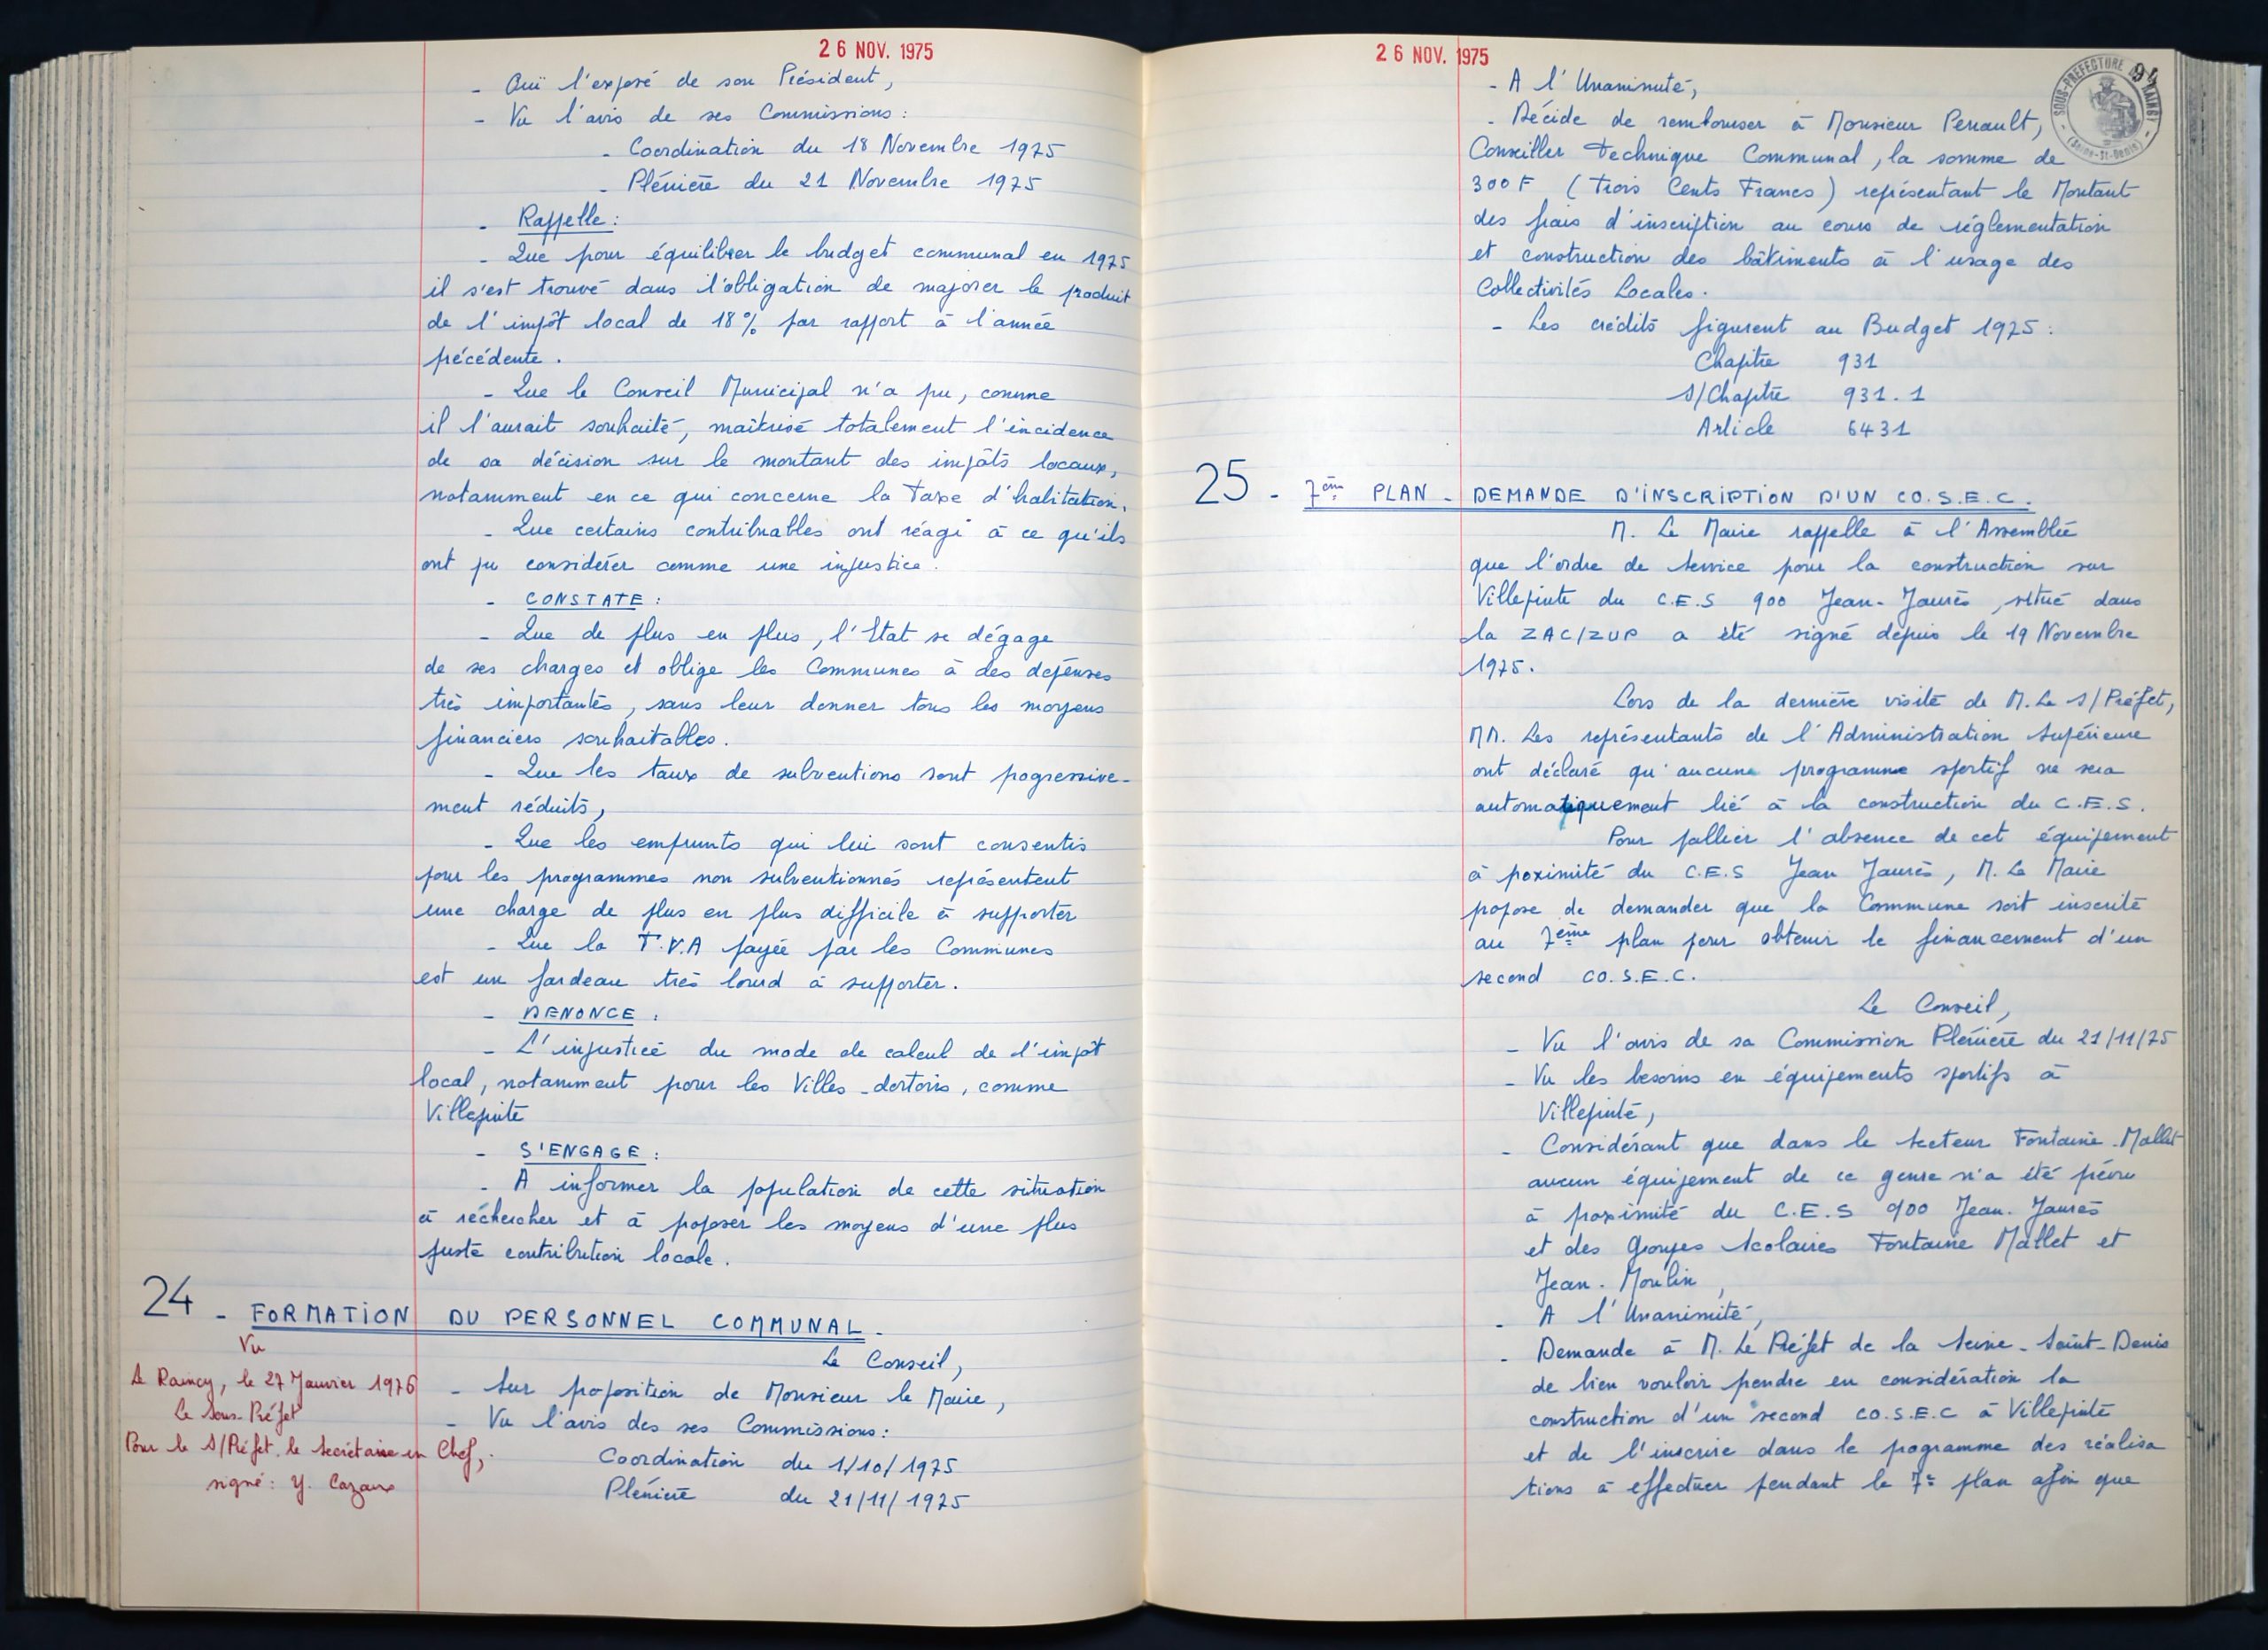 26 NOV. 1975
- Ouï l'exposé de son Président,
- Vu l'avis de ses Commissions :
- Coordination du 18 Novembre 1975
- Plénière du 21 Novembre 1975
- Rappelle :
- Que pour équilibrer le budget communal en 1975
il s'est trouvé dans l'obligation de majorer le produit
de l'impôt local de 18% par rapport à l'année
précédente.
- Que le Conseil Municipal n'a pu, comme
il l'aurait souhaité, maîtrisé totalement l'incidence
de sa décision sur le montant des impôts locaux,
notamment en ce qui concerne la Taxe d'habitation.
- Que certains contribuables ont réagi à ce qu'ils
ont pu considérer comme une injustice.
- CONSTATE :
- Que de plus en plus, l'Etat se dégage
de ses charges et oblige les Communes à des dépenses
très importantes, sans leur donner tous les moyens
financiers souhaitables.
- Que les taux de subventions sont progressive-
ment réduits,
- Que les emprunts qui lui sont consentis
pour les programmes non subventionnés représentent
une charge de plus en plus difficile à supporter
- Que la T.V.A payée par les Communes
est un fardeau très lourd à supporter.
- DENONCE :
- L'injustice du mode de calcul de l'impôt
local, notamment pour les Villes-dortoirs, comme
Villepinte
- S'ENGAGE :
- A informer la population de cette situation
à rechercher et à proposer les moyens d'une plus
juste contribution locale.
24 - FORMATION DU PERSONNEL COMMUNAL -
Vu
Le Raincy, le 27 Janvier 1976
Le Sous-Préfet
Pour le S/Préfet. le Secrétaire en Chef,
signé : Y. Cazaux
Le Conseil,
- Sur proposition de Monsieur le Maire,
- Vu l'avis des ses Commissions :
Coordination du 1/10/1975
Plénière du 21/11/1975
26 NOV. 1975
SOUS-PREFECTURE DU RAINCY
(Seine-St-Denis)
94
- A l'Unanimité,
- Décide de rembourser à Monsieur Perrault,
Conseiller Technique Communal, la somme de
300 F (Trois Cents Francs) représentant le Montant
des frais d'inscription au cours de réglementation
et construction des bâtiments à l'usage des
Collectivités Locales.
- Les crédits figurent au Budget 1975 :
Chapitre 931
S/Chapitre 931.1
Article 6431
25 - 7ème PLAN - DEMANDE D'INSCRIPTION D'UN CO.S.E.C.
M. Le Maire rappelle à l'Assemblée
que l'ordre de Service pour la construction sur
Villepinte du C.E.S 900 Jean-Jaurès, situé dans
la ZAC/ZUP a été signé depuis le 19 Novembre
1975.
Lors de la dernière visite de M. Le S/Préfet,
MM. Les représentants de l'Administration Supérieure
ont déclaré qu'aucune programme sportif ne sera
automatiquement lié à la construction du C.E.S.
Pour pallier l'absence de cet équipement
à proximité du C.E.S Jean Jaurès, M. Le Maire
propose de demander que la Commune soit inscrite
au 7ème plan pour obtenir le financement d'un
second CO.S.E.C.
Le Conseil,
- Vu l'avis de sa Commission Plénière du 21/11/75
- Vu les besoins en équipements sportifs à
Villepinte,
- Considérant que dans le Secteur Fontaine-Mallet
aucun équipement de ce genre n'a été prévu
à proximité du C.E.S 900 Jean-Jaurès
et des Groupes Scolaires Fontaine Mallet et
Jean-Moulin,
- A l'Unanimité,
- Demande à M. Le Préfet de la Seine-Saint-Denis
de bien vouloir prendre en considération la
construction d'un second CO.S.E.C à Villepinte
et de l'inscrire dans le programme des réalisa
tions à effectuer pendant le 7è plan afin que